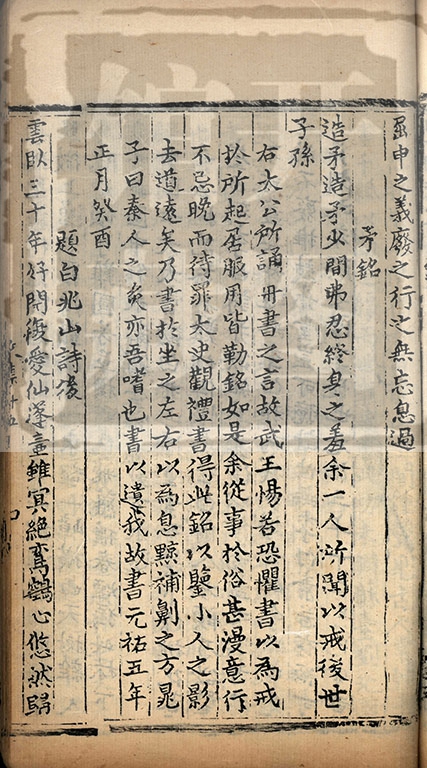 屈申之義廢之行之無忘息過
矛銘
造矛造矛少間弗忍終身之羞余一人所聞以戒後世
子孫
右太公所誦丹書之言故武王惕若恐懼書以為戒
於所起居服用皆勒銘如是余從事於俗甚漫意行
不忌晚而待罪太史觀禮書得此銘以鑒小人之影
去道遠矣乃書於坐之左右以為息黥補劓之方晁
子曰秦人之炙亦吾嗜也書以遺我故書元祐五年
正月癸酉
題白兆山詩後
雲臥三十年好閑復愛仙蓬壺雖冥絕鸞鶴心悠然歸